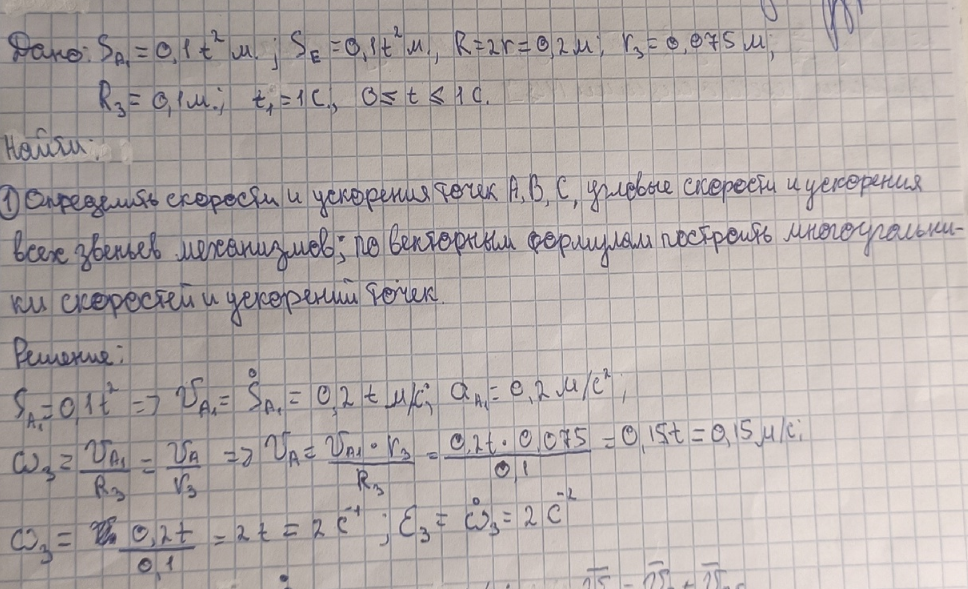 Дано: S_A₁ = 0,1t² м. ; S_E = 0,1t² м., R = 2r = 0,2 м; r₃ = 0,075 м;
R₃ = 0,1 м.; t₁ = 1 с., 0 ≤ t ≤ 1 с.
Найти:
① Определить скорости и ускорения точек A, B, C, угловые скорости и ускорения
всех звеньев механизмов; по векторным формулам построить многоугольни-
ки скоростей и ускорений точек.
Решение:
S_A₁ = 0,1t² => V_A₁ = Ṡ_A₁ = 0,2t м/с; a_A₁ = 0,2 м/с²;
ω₃ = V_A₁/R₃ = V_A/r₃ => V_A = V_A₁·r₃/R₃ = 0,2t·0,075/0,1 = 0,15t = 0,15 м/с;
ω₃ = 0,2t/0,1 = 2t = 2 с⁻¹; ε₃ = ω̇₃ = 2 с⁻²